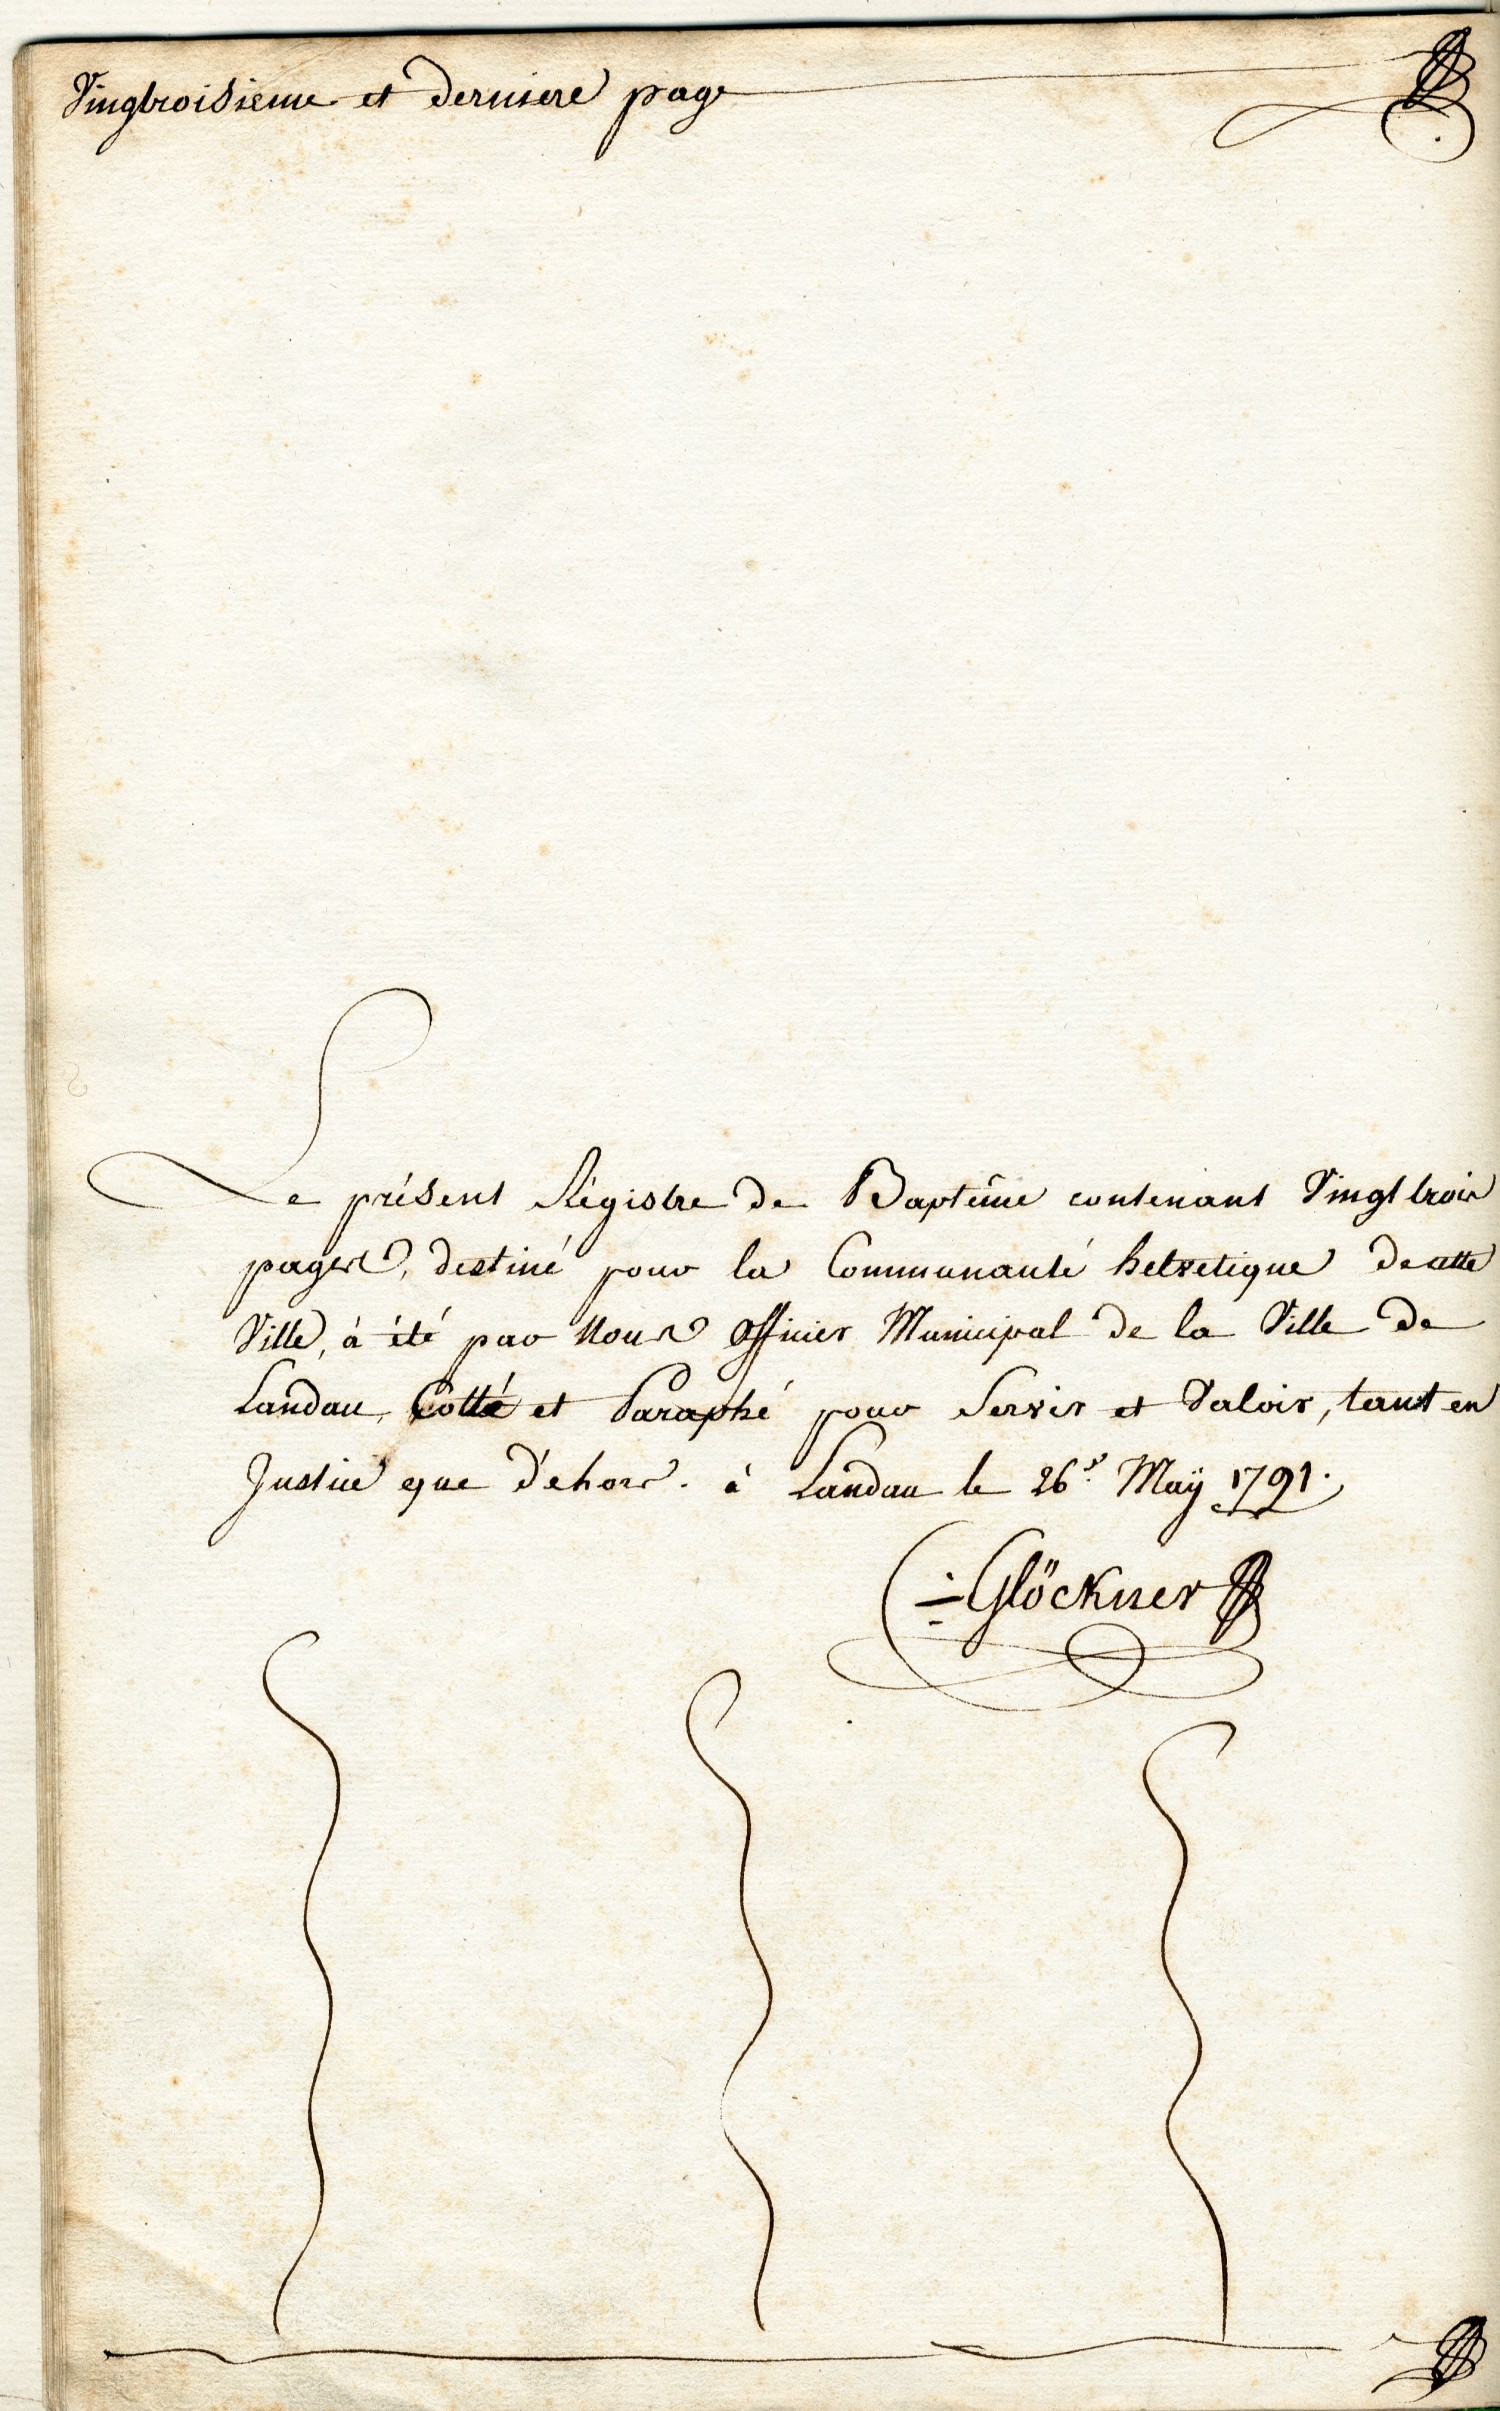 Vingtroisieme et derniere page
Le présent Régistre de Baptême contenant Vingt trois
pages, destiné pour la Communauté helvetique de cette
Ville, à été par Nous Officier Municipal de la Ville de
Landau, Cotté et Paraphé pour Servir et Valoir, tant en
Justice que d'ehors. à Landau le 26.e Maÿ 1791.
Glöckner